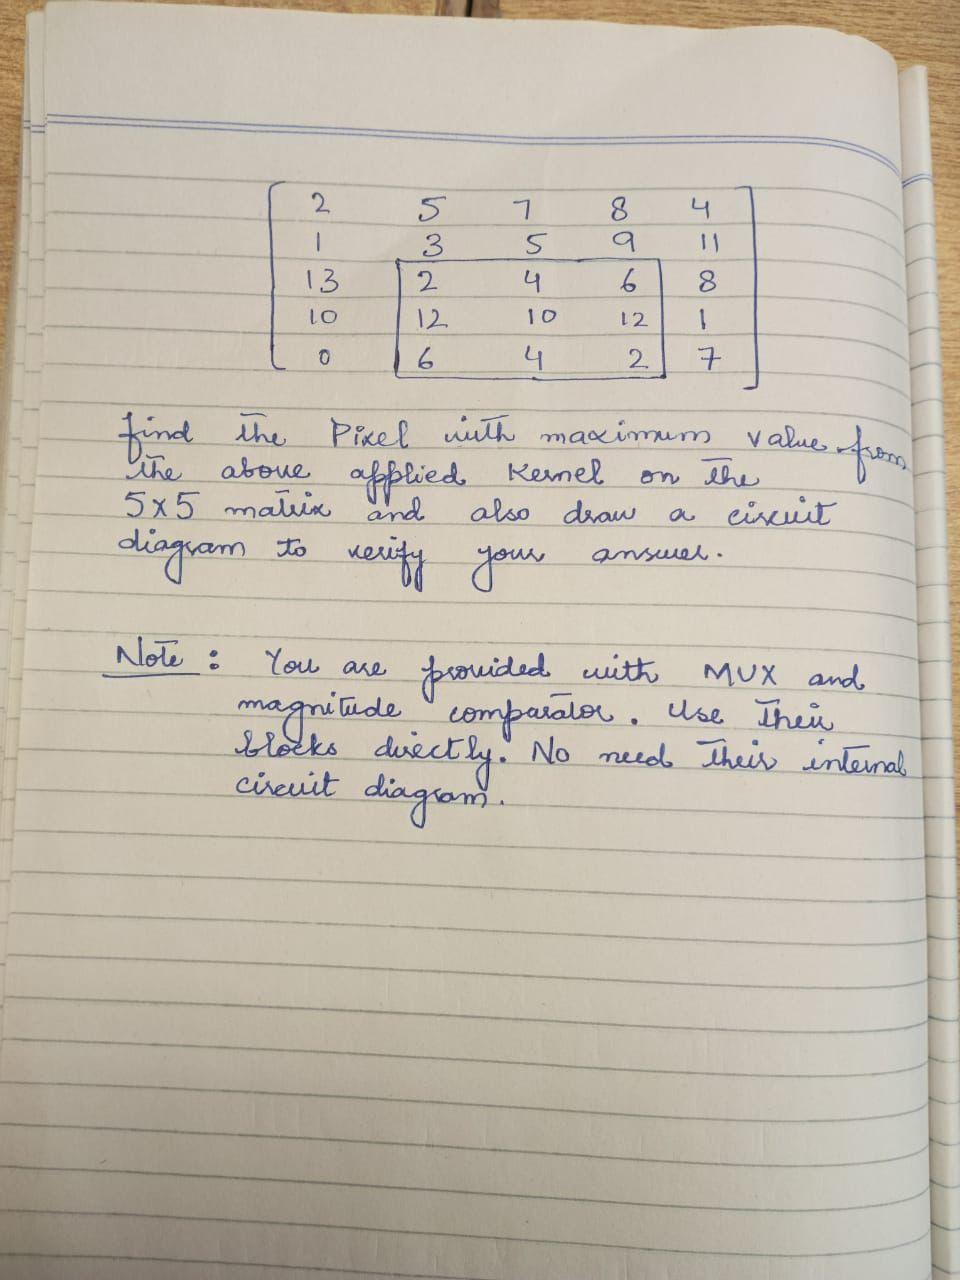 2 5 7 8 4
1 3 5 9 11
13 2 4 6 8
10 12 10 12 1
0 6 4 2 7
find the Pixel with maximum value from
the above applied Kernel on the
5x5 matrix and also draw a circuit
diagram to verify your answer.
Note : You are provided with MUX and
magnitude comparator. Use Their
blocks directly. No need Their internal
circuit diagram.